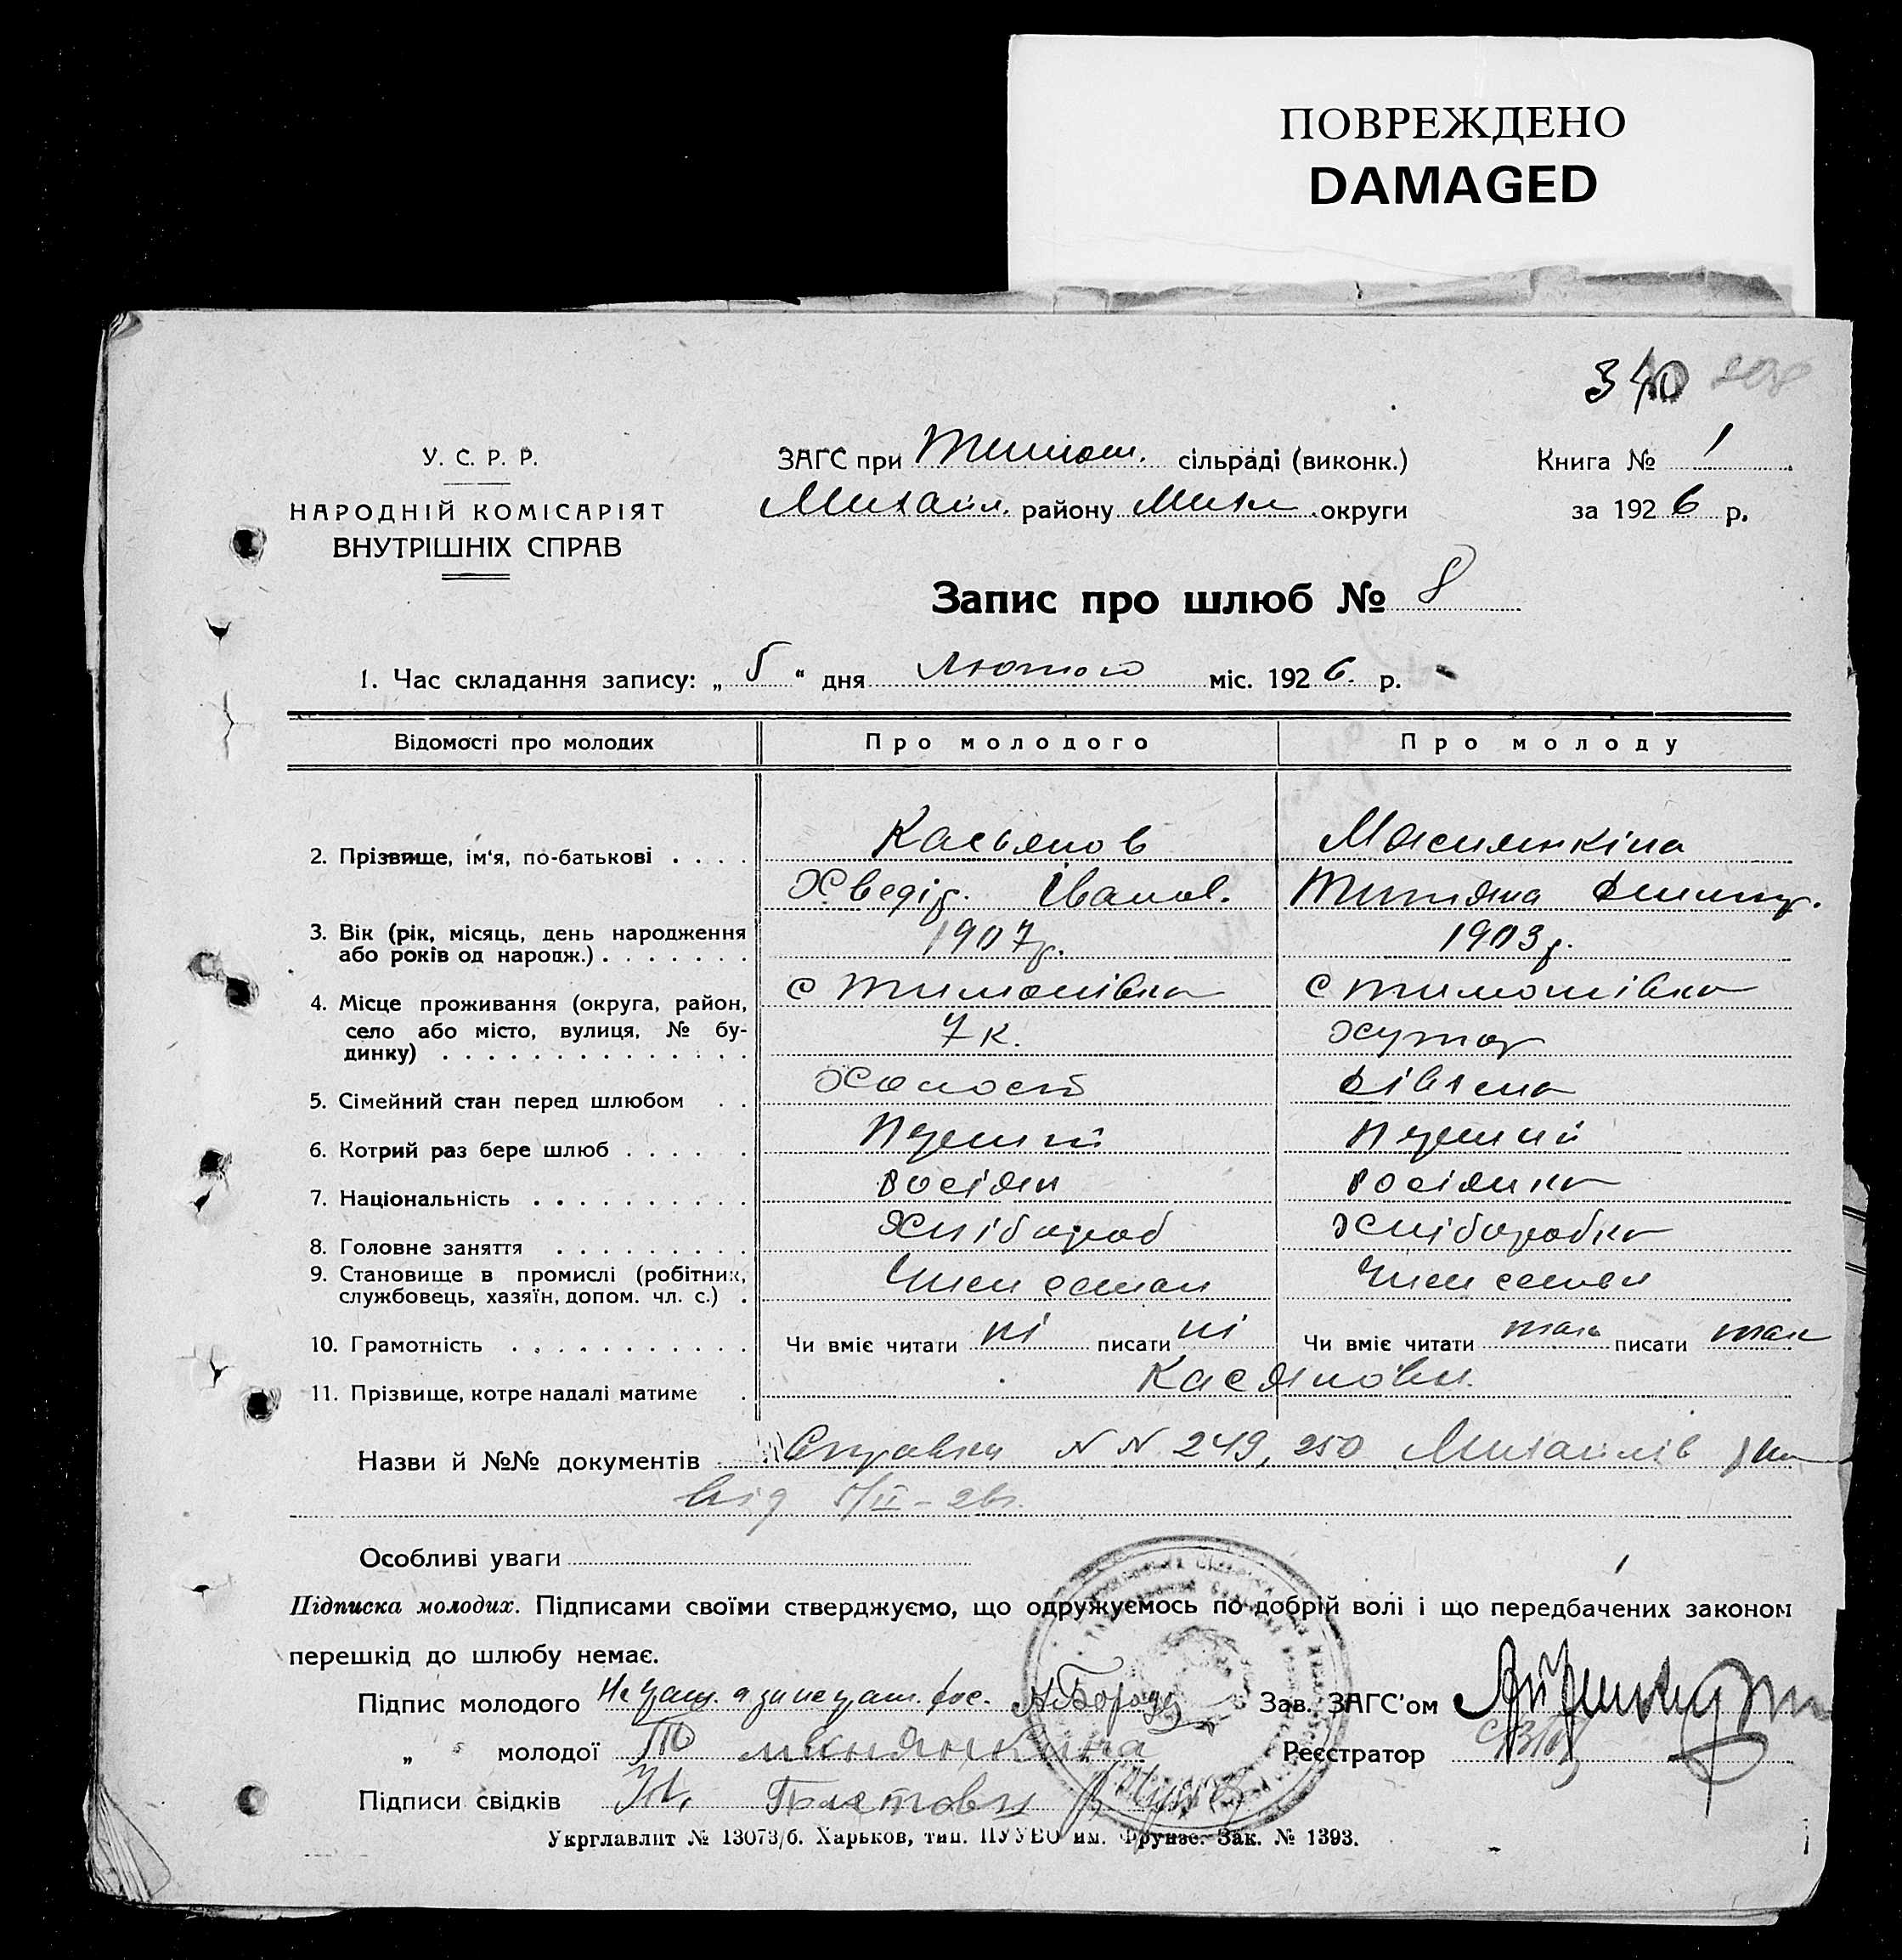 ПОВРЕЖДЕНО
DAMAGED
340
У. С. Р. Р.
НАРОДНІЙ КОМІСАРІЯТ
ВНУТРІШНІХ СПРАВ
ЗАГС при Тимош. сільраді (виконк.)
Михайл. району Мили округи
Книга № 1
за 1926 р.
Запис про шлюб № 8
1. Час складання запису: „ 5 “ дня лютого міс. 1926. р.
Відомості про молодих Про молодого Про молоду
2. Прізвище, ім'я, по-батькові . . . . Касьянов
Хведір. Іванов. Титяна
3. Вік (рік, місяць, день народження
або років од народж.) . . . . . . . 1907р. 1903р.
4. Місце проживання (округа, район,
село або місто, вулиця, № бу-
динку) . . . . . . . . . . . . . . с Тимошівка с Тимошівка
7 к. хутор
5. Сімейний стан перед шлюбом . . Холост Дівчена
6. Котрий раз бере шлюб . . . . . . Перший Перший
7. Національність . . . . . . . . . . росіян росіянка
8. Головне заняття . . . . . . . . . Хлібороб Хліборобка
9. Становище в промислі (робітник,
службовець, хазяїн, допом. чл. с.) . Член семьи Член семьи
10. Грамотність . . . . . . . . . . . Чи вміє читати ні писати ні Чи вміє читати так писати так
11. Прізвище, котре надалі матиме . Касянови.
Назви й №№ документів Справки N N 249, 250 Михайлів
від 5/II – 26р.
Особливі уваги
Підписка молодих. Підписами своїми стверджуємо, що одружуємось по добрій волі і що передбачених законом
перешкід до шлюбу немає.
Підпис молодого Не грам. а за неграм. рос.
Зав. ЗАГС'ом
„ “ молодої
Реєстратор
Підписи свідків
Укрглавліт № 13073/б. Харьков, тип. ПУУВО им. Фрунзе. Зак. № 1393.